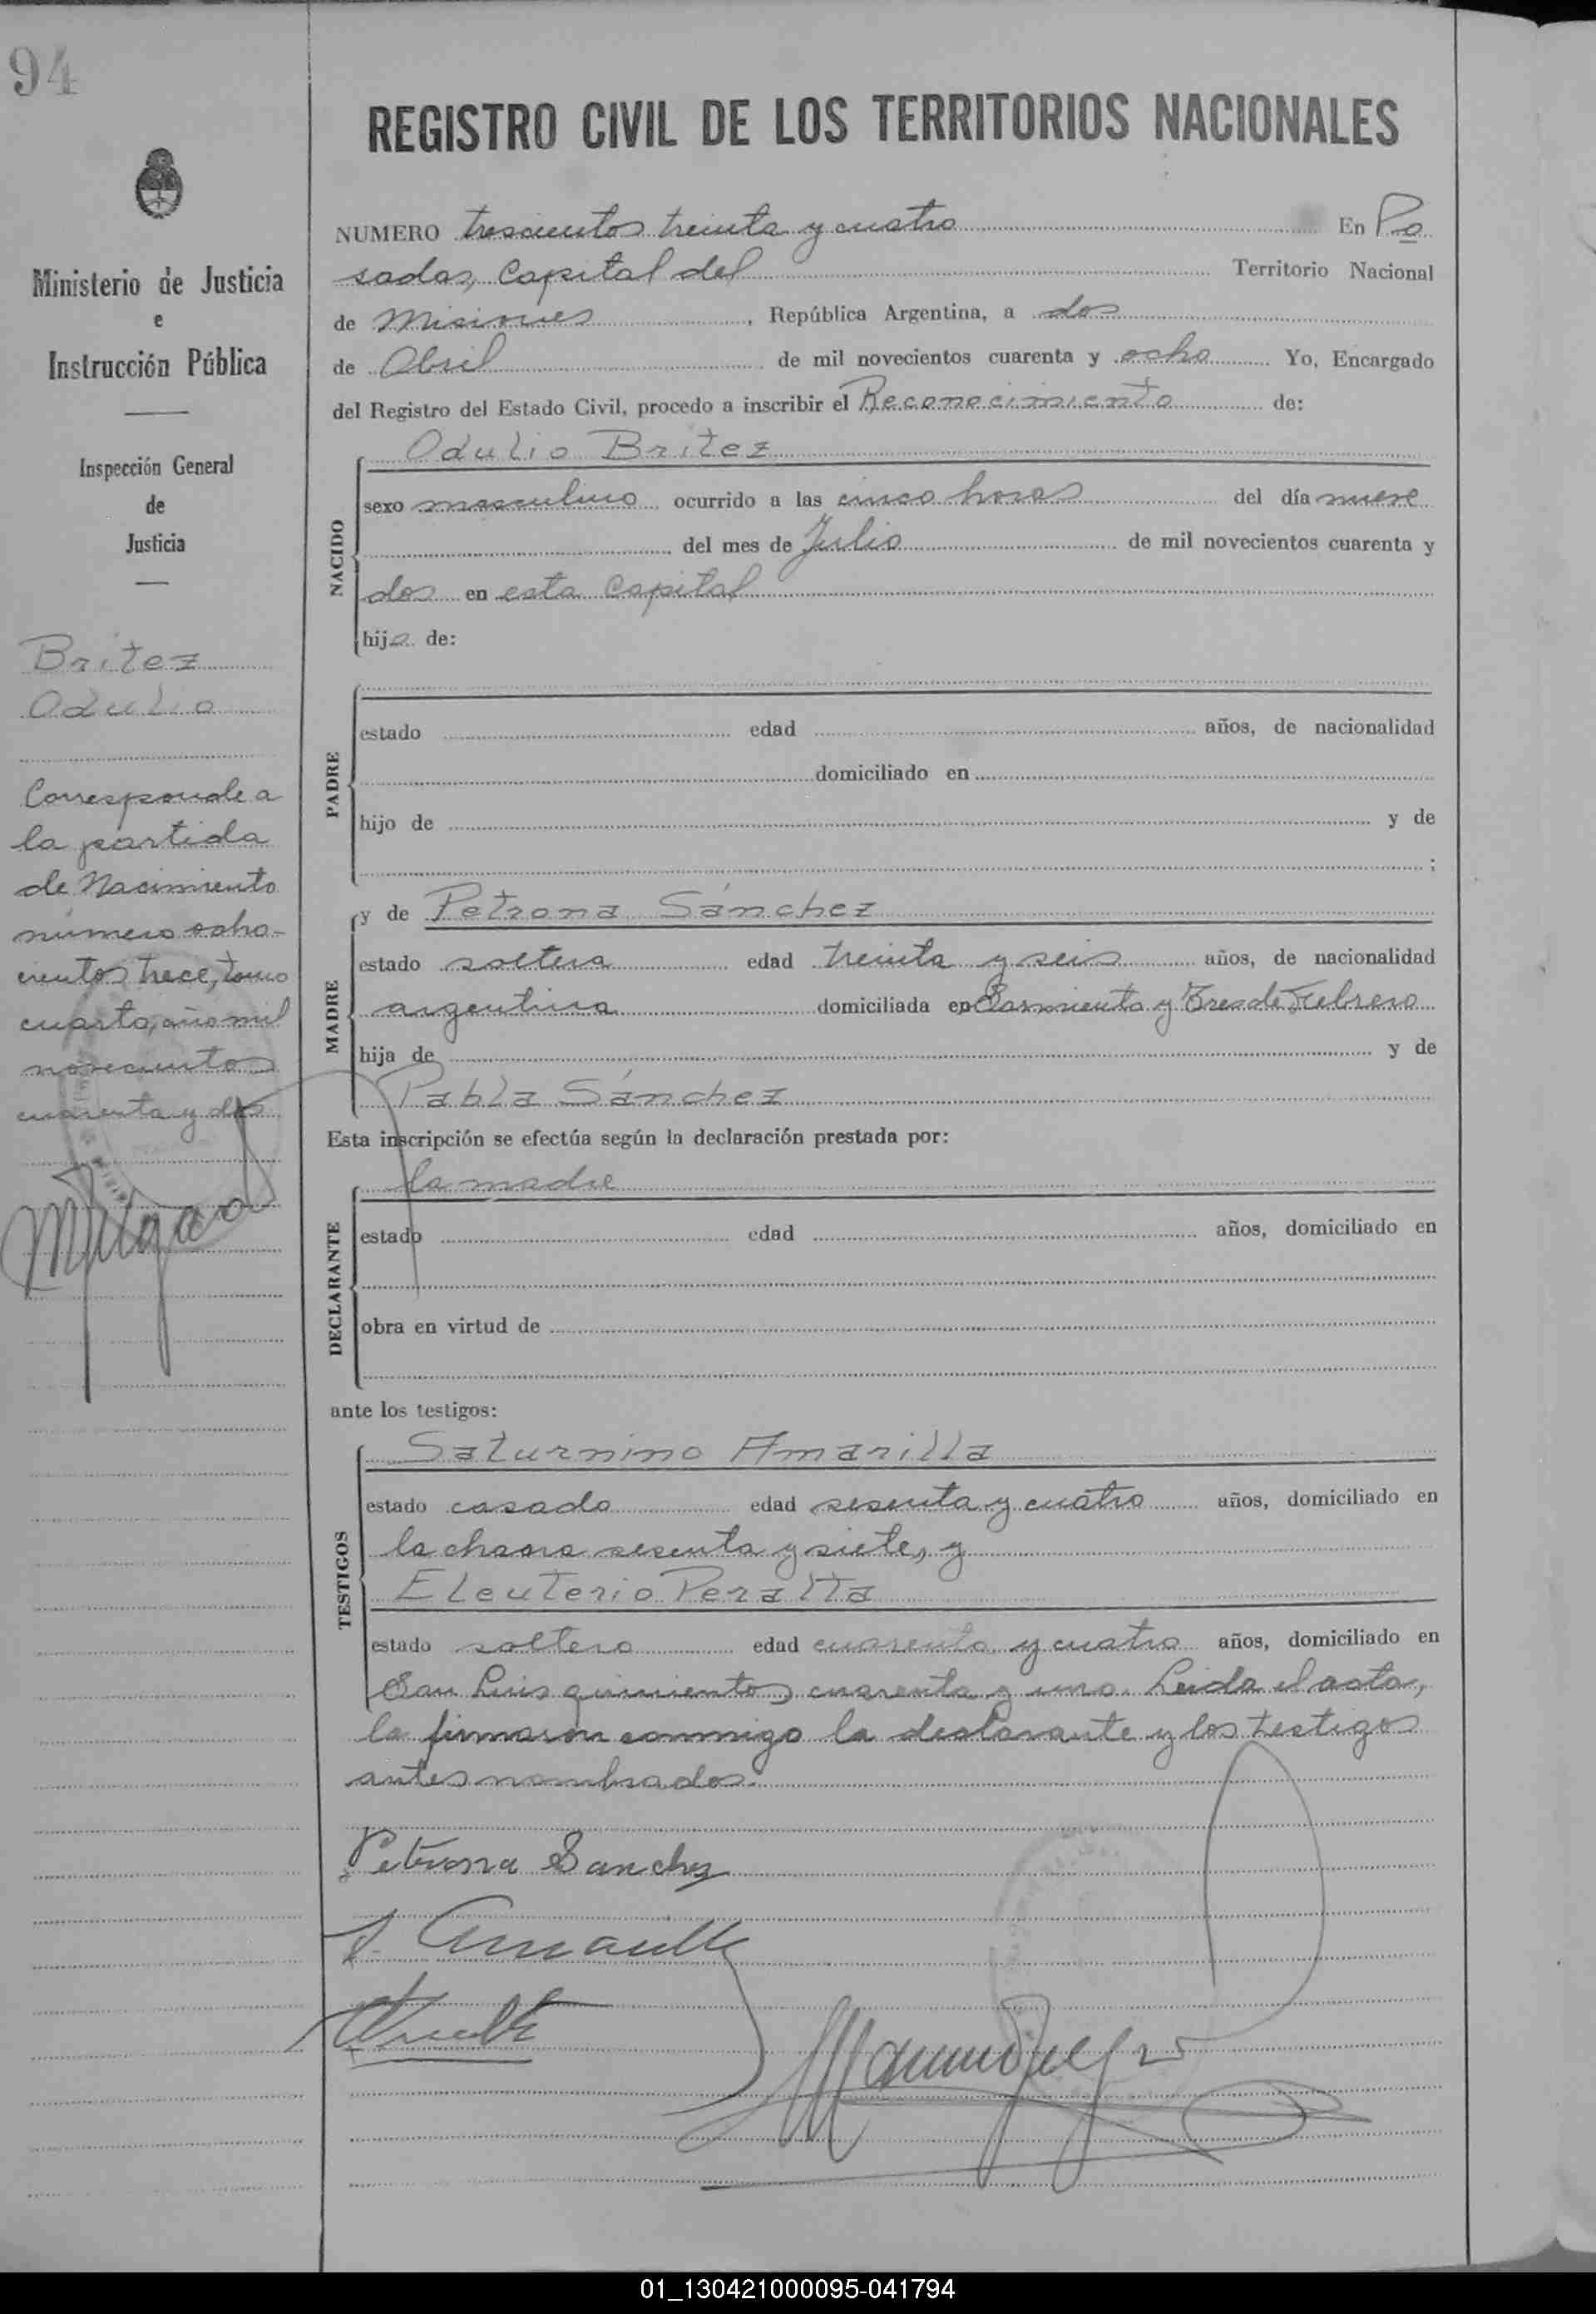 94
REGISTRO CIVIL DE LOS TERRITORIOS NACIONALES
Ministerio de Justicia
e
Instrucción Pública
Inspección General
de
Justicia
Britez
Odulio
Corresponde a
la partida
de Nacimiento
número ocho-
cientos trece, tomo
cuarto, año mil
novecientos
cuarenta y dos
NUMERO trescientos treinta y cuatro En Po
sadas, Capital del Territorio Nacional
de Misiones, República Argentina, a dos
de Abril de mil novecientos cuarenta y ocho Yo, Encargado
del Registro del Estado Civil, procedo a inscribir el Reconocimiento de:
NACIDO
Odulio Britez
sexo masculino ocurrido a las cinco horas del día nueve
del mes de Julio de mil novecientos cuarenta y
dos en esta Capital
hijo de:
PADRE
estado edad años, de nacionalidad
domiciliado en
hijo de y de
;
MADRE
y de Petrona Sánchez
estado soltera edad treinta y seis años, de nacionalidad
argentina domiciliada en Sarmiento y Tres de Febrero
hija de y de
Pabla Sánchez
Esta inscripción se efectúa según la declaración prestada por:
DECLARANTE
la madre
estado edad años, domiciliado en
obra en virtud de
ante los testigos:
TESTIGOS
Saturnino Amarilla
estado casado edad sesenta y cuatro años, domiciliado en
la chacra sesenta y siete, y
Eleuterio Peralta
estado soltero edad cuarenta y cuatro años, domiciliado en
San Luis quinientos cuarenta y uno. Leida el acta,
la firmaron conmigo la declarante y los testigos
antes nombrados.
Petrona Sanchez
S. Amarilla
01_130421000095-041794